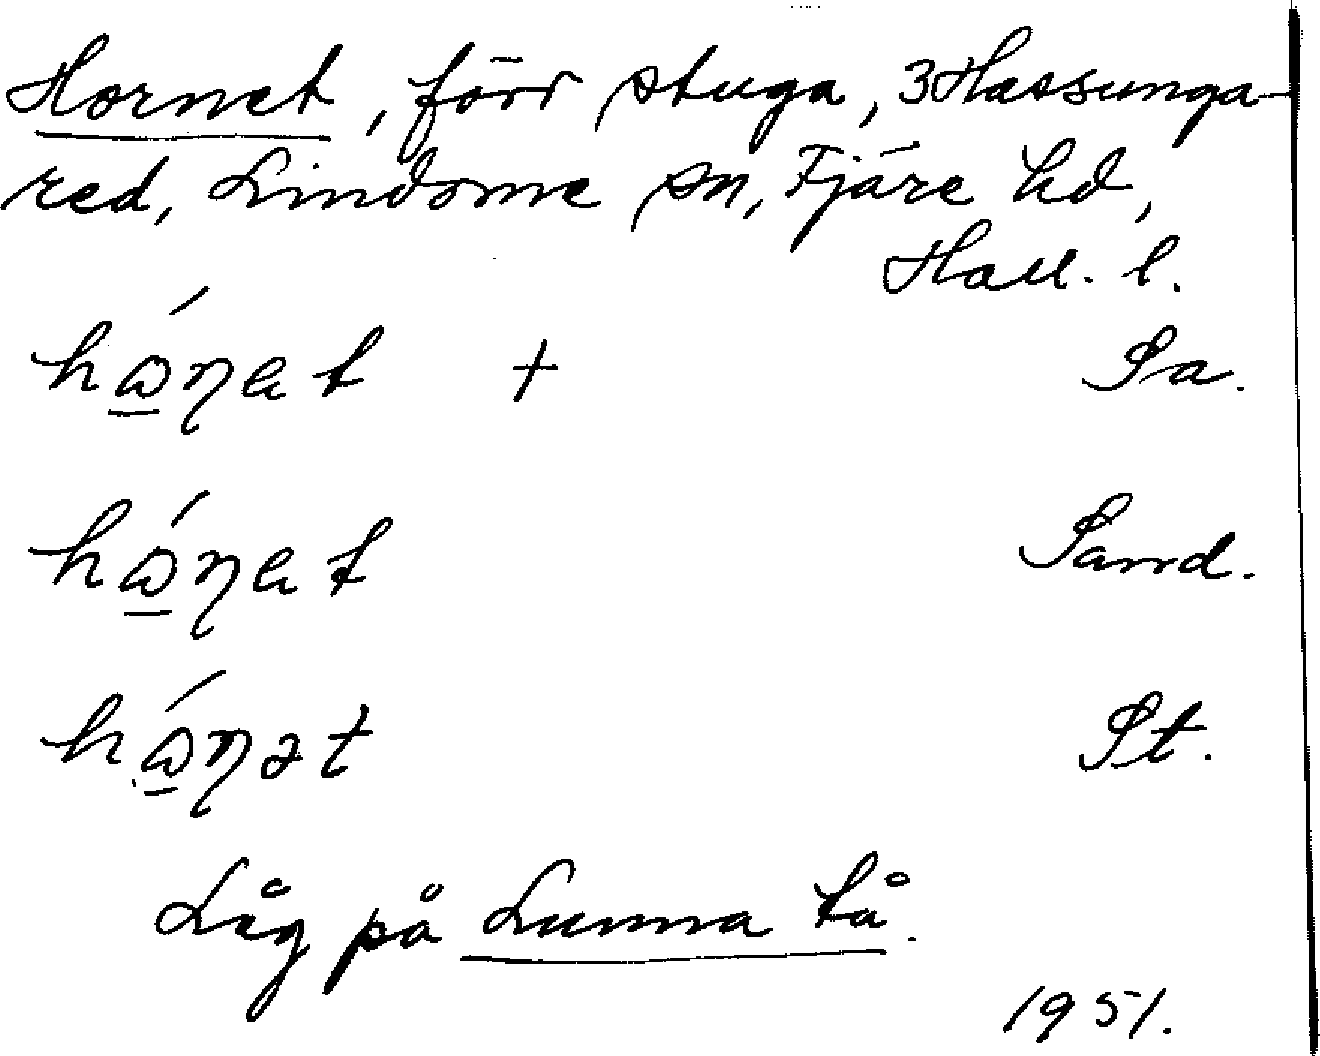 Hornet, förr stuga, 3 Hassunga-
red, Lindome sn, Fjäre hd,
Hall. l.
hώ̲ɳet + Sa.
hώ̲ɳet Sand.
hώ̲ɳət St.
Låg på Lunna tå.
1951.